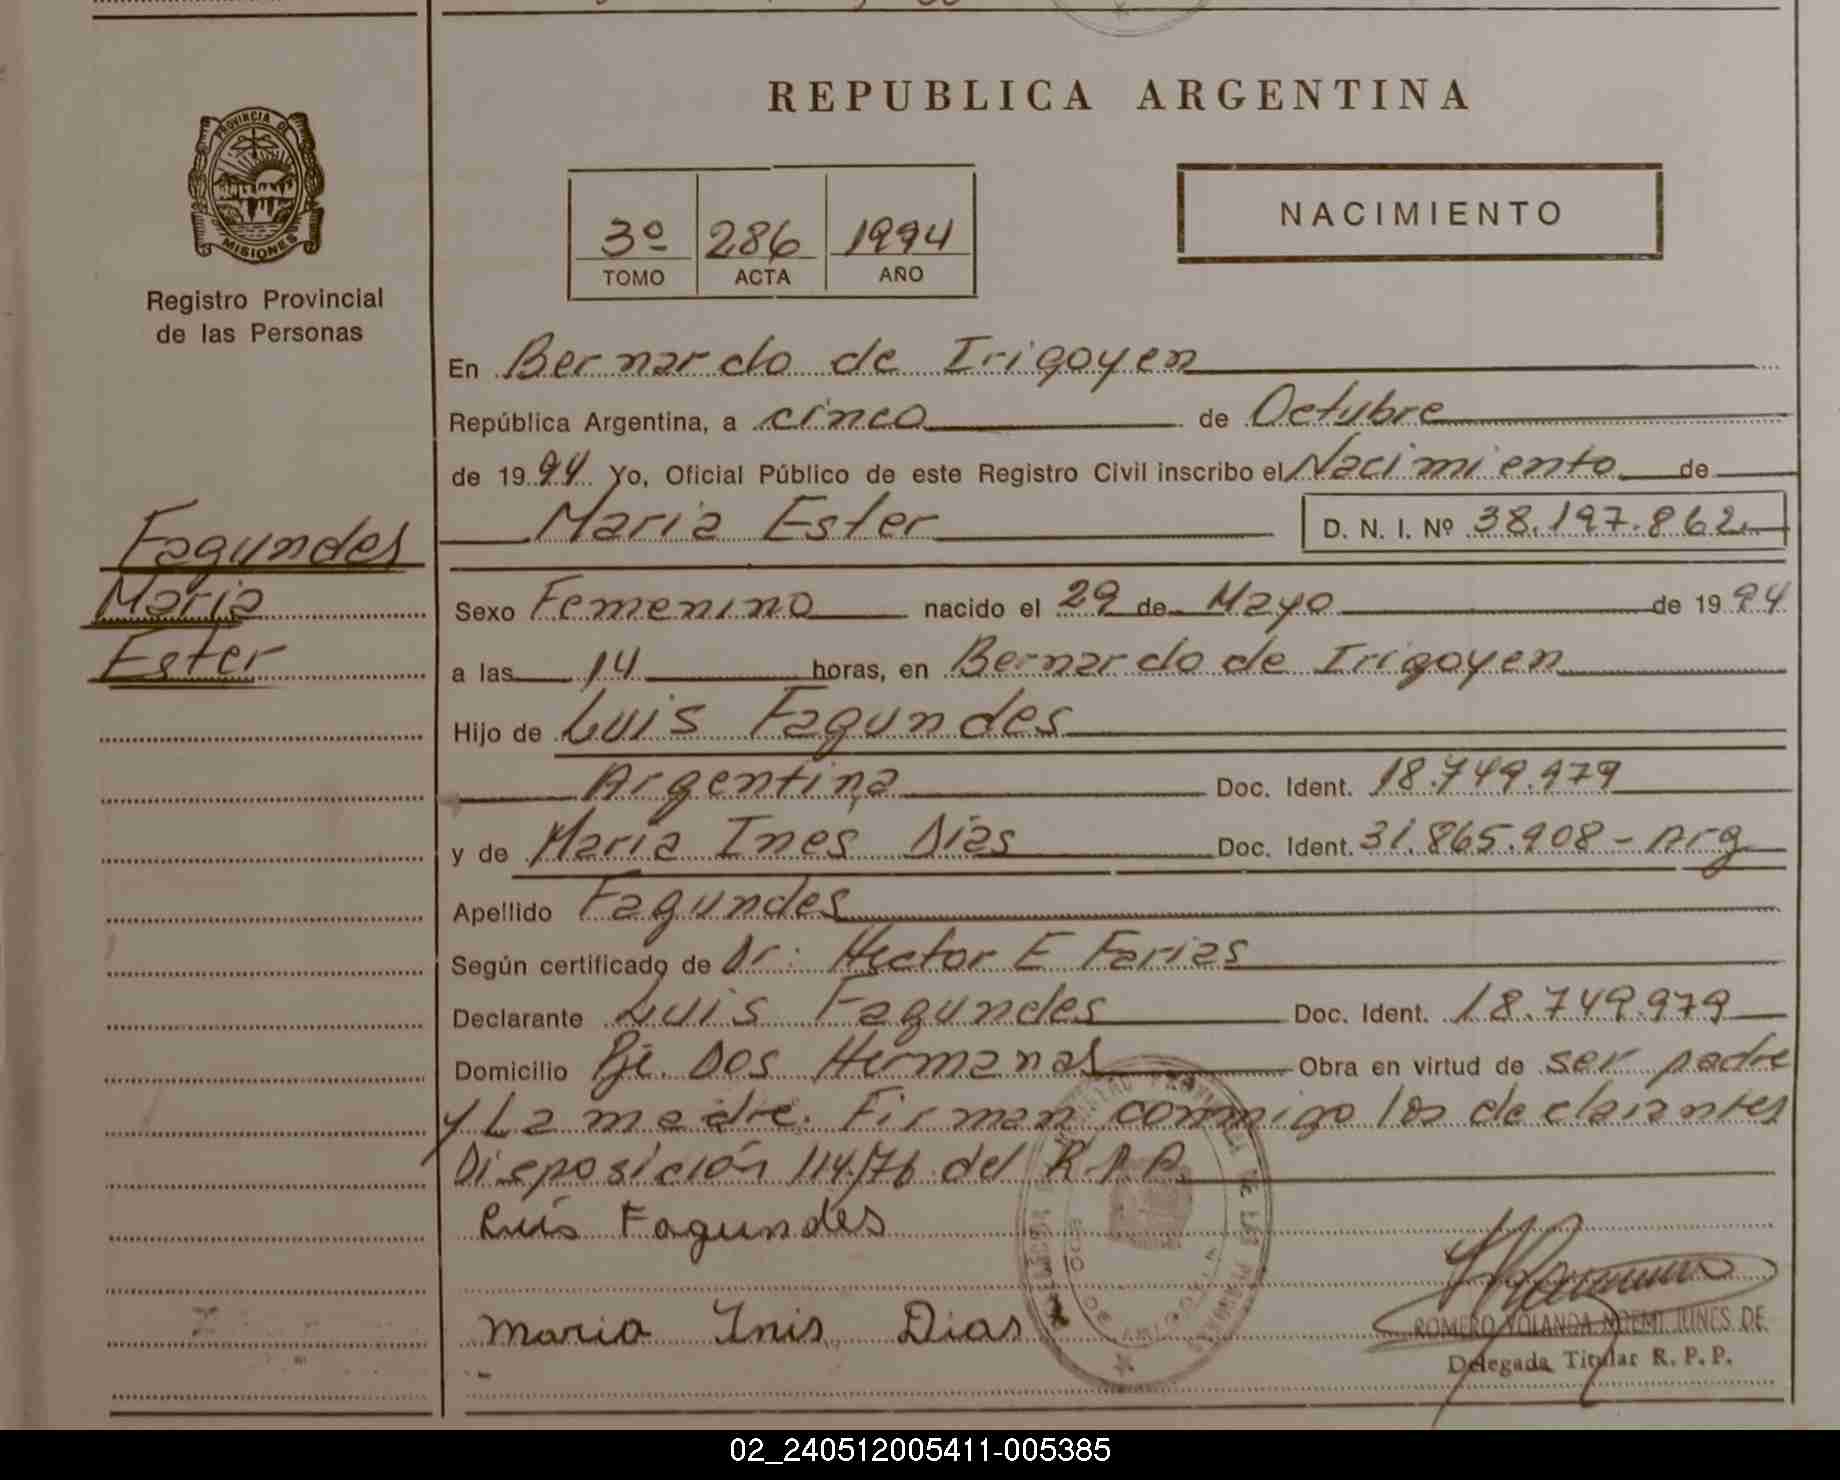 REPUBLICA ARGENTINA
PROVINCIA DE
MISIONES
Registro Provincial
de las Personas
3º 286 1994
TOMO ACTA AÑO
NACIMIENTO
En Bernardo de Irigoyen
República Argentina, a cinco de Octubre
de 1994 Yo, Oficial Público de este Registro Civil inscribo el Nacimiento de
Maria Ester D. N. I. Nº 38.197.862
Fagundes
Maria
Ester
Sexo Femenino nacido el 29 de Mayo de 1994
a las 14 horas, en Bernardo de Irigoyen
Hijo de Luis Fagundes
Argentina Doc. Ident. 18.749.979
y de Maria Ines Dias Doc. Ident. 31.865.908 - Arg
Apellido Fagundes
Según certificado de Dr: Hector E Farias
Declarante Luis Fagundes Doc. Ident. 18.749.979
Domicilio Pje. Dos Hermanas Obra en virtud de ser padre
y La madre. Firman conmigo los declarantes
Disposición 114/76 del R.P.P.
Luis Fagundes
Maria Inis Dias
ROMERO YOLANDA NOEMI JUNES DE
Delegada Titular R. P. P.
02_240512005411-005385